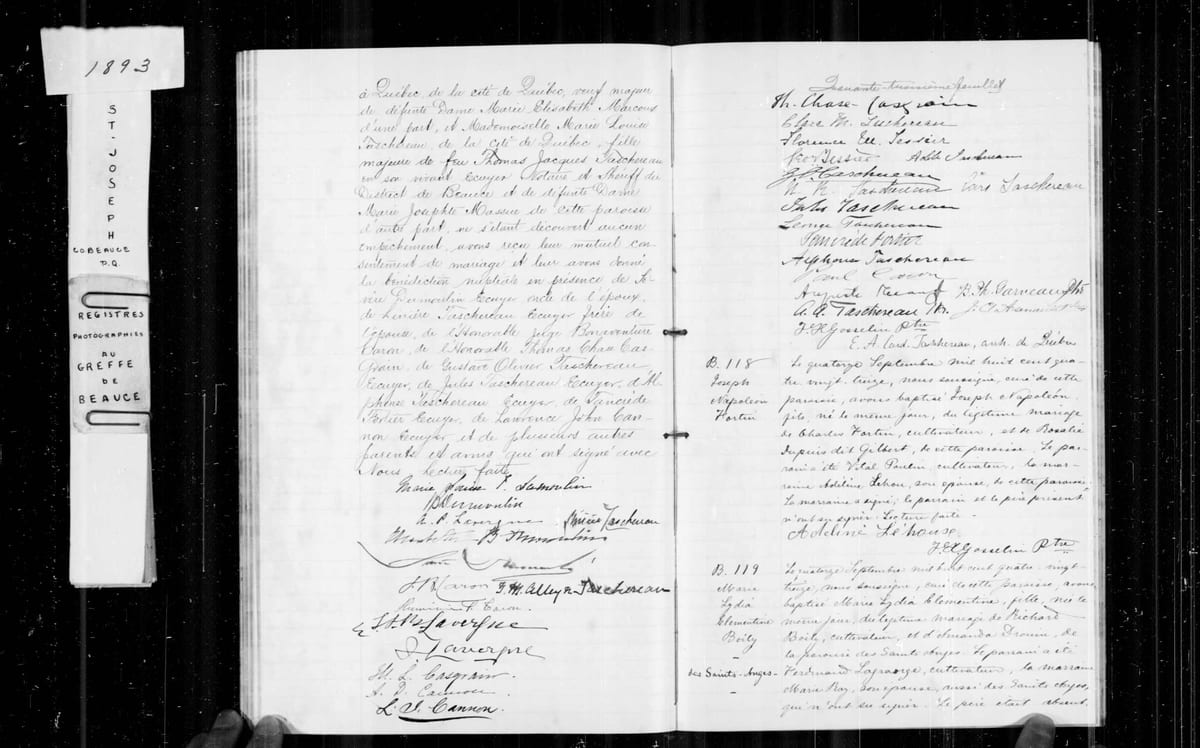 1893
ST-JOSEPH
CO BEAUCE
P.Q.
REGISTRES
PHOTOGRAPHIÉS
AU
GREFFE
DE
BEAUCE
à Québec, de la cité de Québec, veuf majeur
de défunte Dame Marie Elisabeth Marcoux
d'une part, et Mademoiselle Marie Louise
Taschereau de la cité de Québec, fille
majeure de feu Thomas Jacques Taschereau
en son vivant Ecuyer Notaire et Shérif du
District de Beauce et de défunte Dame
Marie Josephte Massue de cette paroisse
d'autre part, ne s'étant découvert aucun
empêchement, avons reçu leur mutuel con-
sentement de mariage et leur avons donné
la bénédiction nuptiale en présence de
Dumoulin Ecuyer oncle de l'époux,
de Linière Taschereau Ecuyer frère de
l'épouse, de l'Honorable Juge Bonaventure
Caron, de l'Honorable Thomas Chase Cas-
grain, de Gustave Olivier Taschereau
Ecuyer, de Jules Taschereau Ecuyer, d'Al-
phonse Taschereau Ecuyer, de Tancrède
Fortier Ecuyer, de Lawrence John Can-
non Ecuyer et de plusieurs autres
parents et amis qui ont signé avec
Nous. Lecture faite
Marie Louise T. Dumoulin
Dumoulin
Lavergne Linière Taschereau
Dumoulin
Caron Taschereau
Caron
Lavergne
J Lavergne
Casgrain
A. D. Cannon
L. J. Cannon
Quarante-troisième feuillet
Th. Chase-Casgrain
Taschereau
Florence Tessier
Taschereau
Taschereau
Taschereau Taschereau
Jules Taschereau
George Taschereau
Tancrède Fortier
Alphonse Taschereau
Auguste B. Ph. Garneau Ptre
A. A. Taschereau
F X Gosselin Ptre
E. A. Card. Taschereau, arch. de Québec
B. 118
Joseph
Napoléon
Fortin
Le quatorze Septembre mil huit cent qua-
tre vingt-treize, nous soussigné, curé de cette
paroisse, avons baptisé Joseph Napoléon,
fils, né le même jour, du légitime mariage
de Charles Fortin, cultivateur, et de Rosalie
Dupuis dit Gilbert, de cette paroisse. Le par-
rain a été Vital Poulin, cultivateur, la mar-
raine Adeline Lehou, son épouse, de cette paroisse.
La marraine a signé; le parrain et le père présent
n'ont su signer. Lecture faite.
Adeline Léhouse
F X Gosselin Ptre
B. 119
Marie
Lydia
Clementine
Boily
-
des Saints-Anges-
Le quatorze Septembre mil huit cent quatre-vingt-
treize, nous soussigné, curé de cette paroisse, avons
baptisé Marie Lydia Clementine, fille, née le
même jour, du légitime mariage de Richard
Boily, cultivateur, et d'Amanda Drouin, de
la paroisse des Saints Anges. Le parrain a été
Ferdinand, cultivateur, la marraine
Marie Roy, son épouse, aussi des Saints Anges,
qui n'ont su signer. Le père était absent.